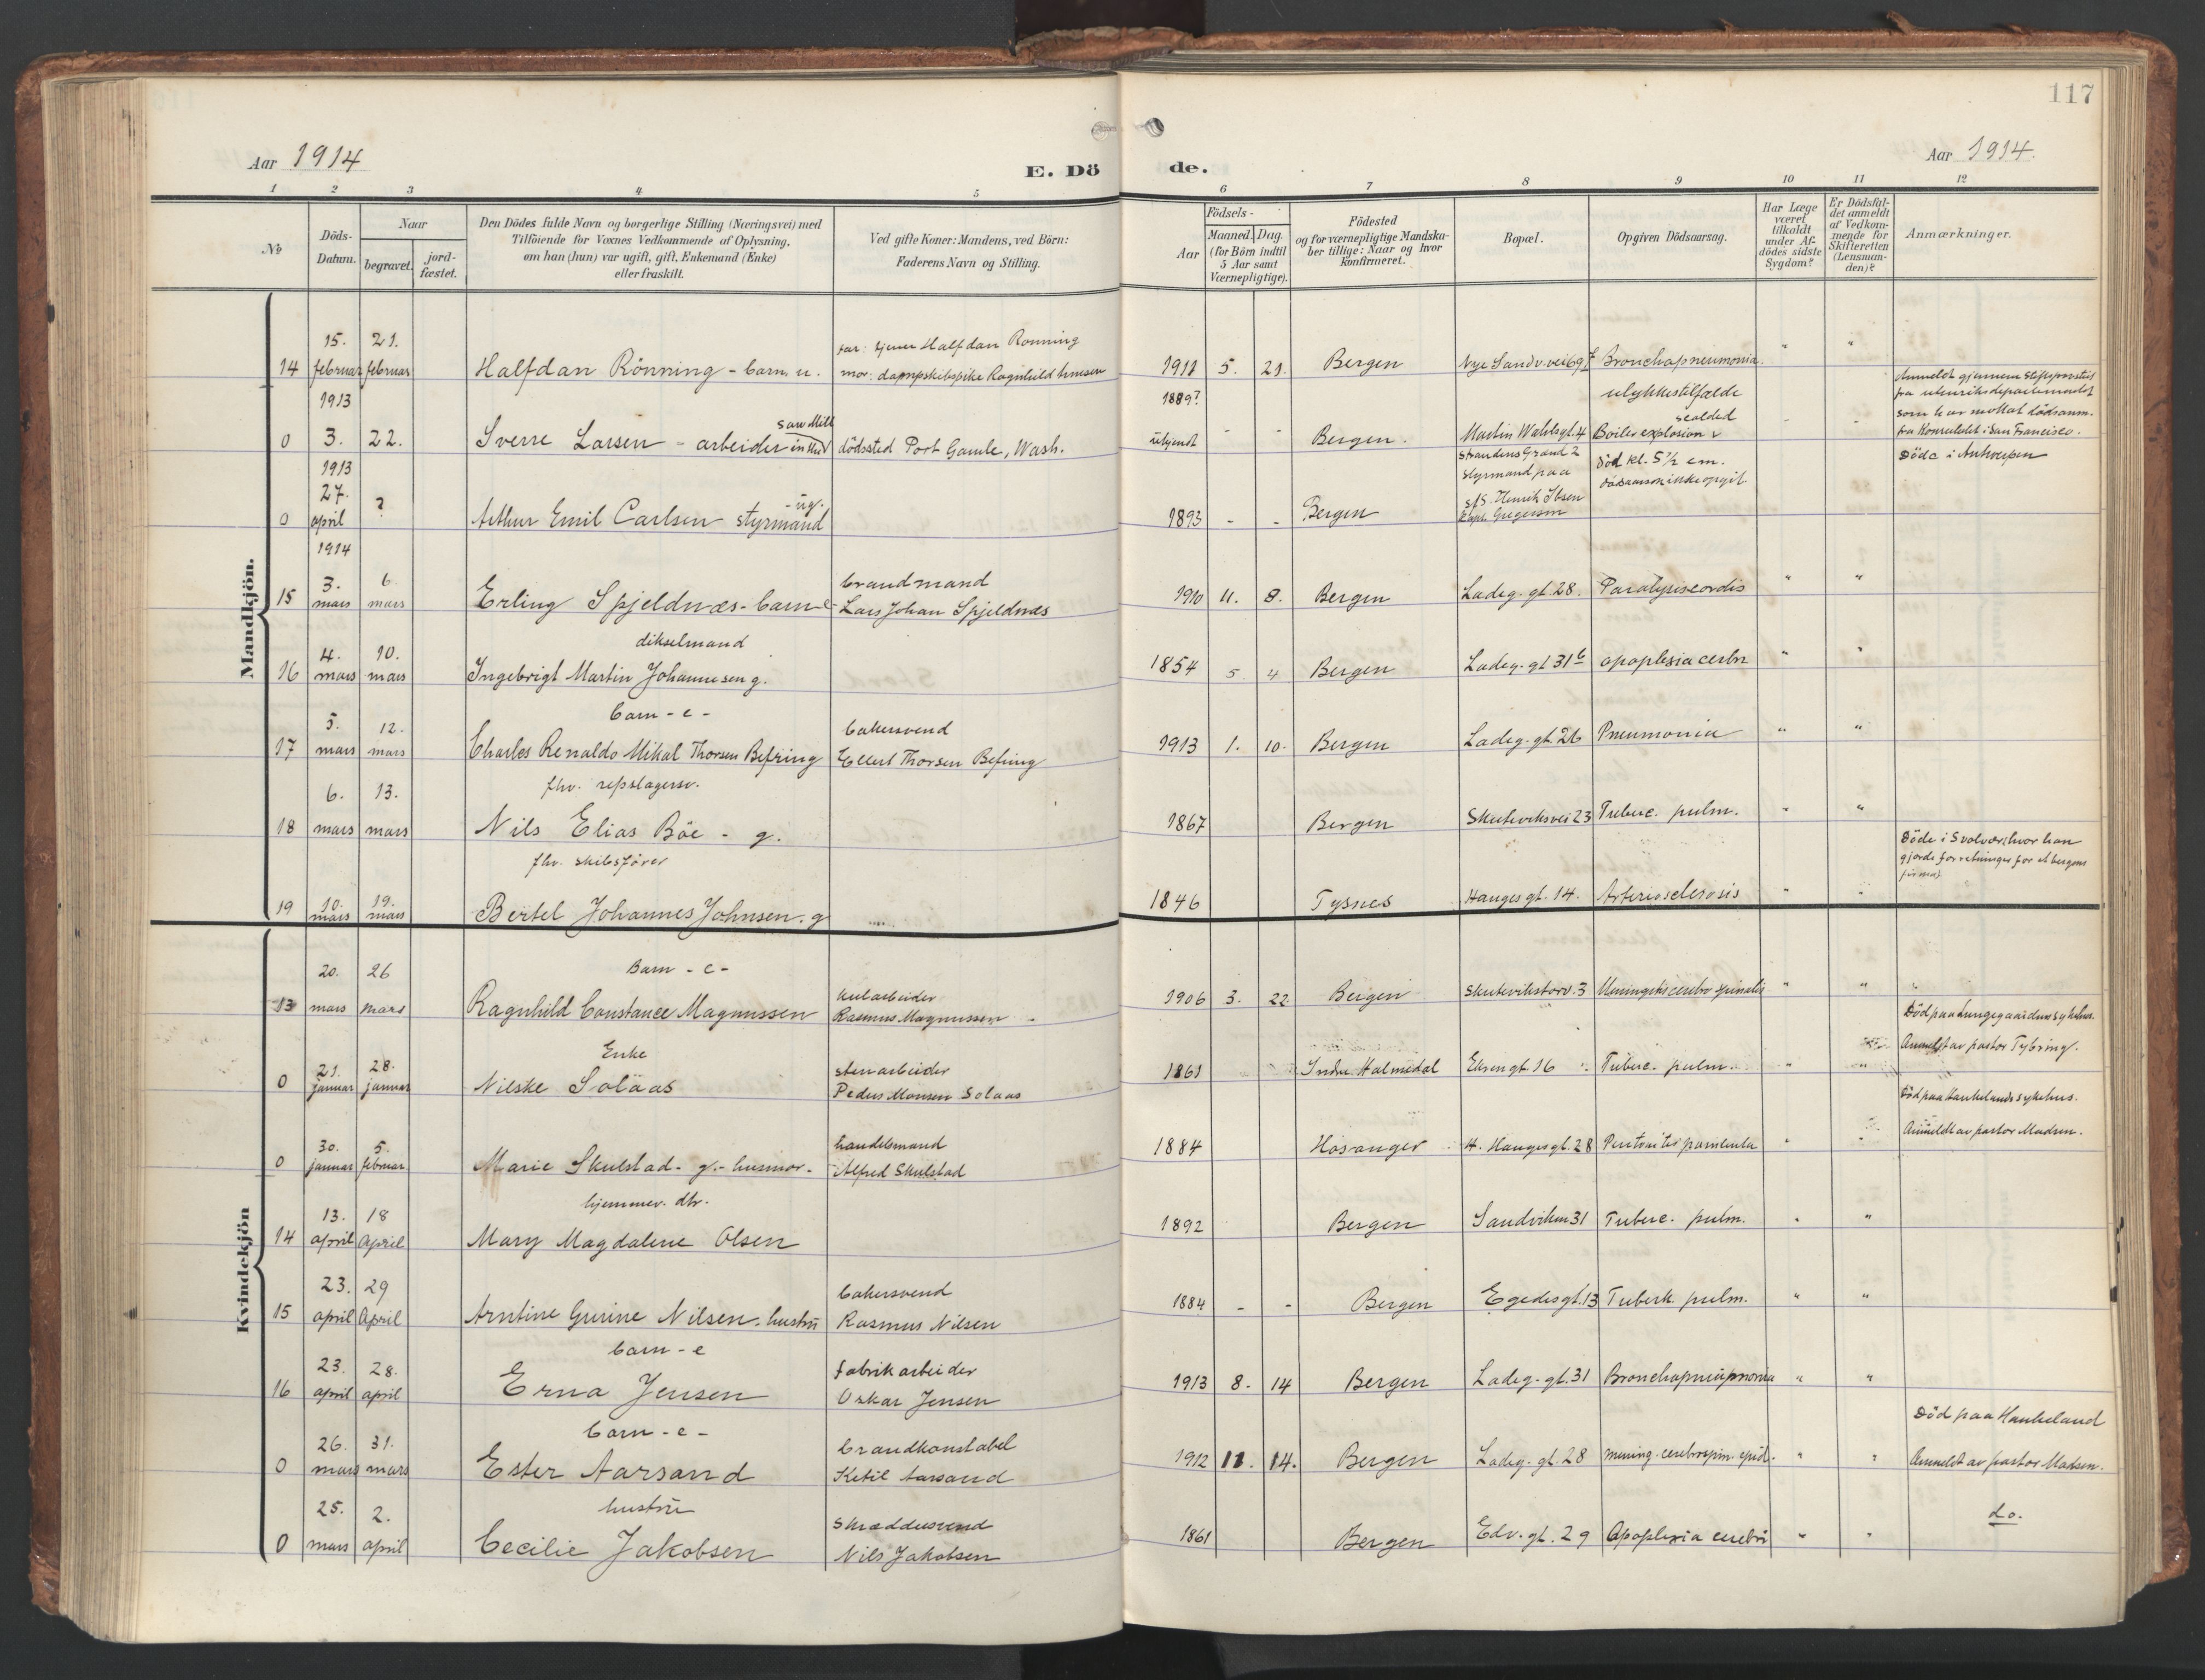 117
Aar 1914
E. Dö de.
Aar 1914.
1 2 3 4 5 6 7 8 9 10 11 12
No
Döds-Datum.
Naar
begravet.
jord-fæstet.
Den Dödes fulde Navn og borgerlige Stilling (Næringsvei) med
Tilföiende for Voxnes Vedkommende af Oplysning,
om han (hun) var ugift, gift, Enkemand (Enke)
eller fraskilt.
Ved gifte Koner: Mandens, ved Börn:
Faderens Navn og Stilling.
Födsels-
Aar
Maaned. Dag.
(for Börn indtil
5 Aar samt
Værnepligtige).
Födested
og for værnepligtige Mandska-
ber tillige: Naar og hvor
Konfirmeret.
Bopæl.
Opgiven Dödsaarsag.
Har Læge
været
tilkaldt
under Af-
dödes sidste
Sygdom?
Er Dödsfal-
det anmeldt
af Vedkom-
mende for
Skifteretten
(Lensman-
den)?
Anmærkninger.
Mandkjön.
15. 21. far: tjener Halfdan Rönning
14 februar februar Halfdan Rönning - barn. u. mor: dampskibspike Ragnhild 1911 5. 21. Bergen Nye Sandv.vei 69 Bronchopneumonia " "
Anmeldt gjennem Stiftsprosten
fra utenriksdepartementet
som har mottat dödsanm.
fra Konsulatet i San Francisco.
1913 saw Mill 1889? ulykkestilfælde
scalded
0 3. 22. Sverre Larsen - arbeider dödssted Port Gamle, Wash. ubekjendt - - Bergen. Martin Wahlsgt. 4 Boiler explosion
1913 Strandens Grand 2 Död kl. 5½ em. Döde i Antwerpen
27. ? - ug. styrmand paa dödsaarsak ikke opgit.
s/s. Henrik Ibsen
0 april Arthur Emil Carlsen styrmand 1893 - - Bergen Kapt. Gregersen
1914
3. 6. brandmand
15 mars mars Erling Spjeldnæs - barn e Lars Johan Spjeldnæs 1910 11. 8. Bergen Ladeg. gt. 28. Paralysis cordis " "
4. 10. dikselmand
16 mars mars Ingebrigt Martin Johannesen g. 1854 5 4 Bergen Ladeg. gt 31 b apoplexia cerebr " "
5. 12. barn - e - bakersvend
17 mars mars Charles Renaldo Mikal Thorsen Befring Ellert Thorsen Befring 1913 1. 10. Bergen Ladeg. gt. 26 Pneumonia " "
6. 13. fhv. repslagersv.
18 mars mars Nils Elias Böe - g. 1867 Bergen Skuteviksvei 23 Tuberc. pulm. " "
fhv. skibsförer
Döde i Svolvær, hvor han
gjorde forretninger for et bergens
firma
10. 19.
19 mars mars Bertel Johannes Johnsen. g 1846 Tysnes Hauges gt. 14. Arteriosclerosis " "
Kvindekjön
20. 26 Barn - e - kularbeider
13 mars mars Ragnhild Constance Magnussen Rasmus Magnussen 1906 3. 22 Bergen Skutevikstorv. 3 Meningitis cerebro spinalis " " "
Död paa Lungegaardens sykehus.
21. 28. Enke stenarbeider Anmeldt av pastor Tybring.
0 januar januar Nilske Solaas Peder Monsen Solaas 1861 Indre Holmedal Ekrengt. 16 Tuberc. pulm. " "
Död paa Haukelands sykehus.
30. 5. handelsmand Anmeldt av pastor Madsen.
0 januar februar Marie Skulstad - g. - husmor - Alfred Skulstad 1884 Hosanger H. Hauges gt. 28 " "
13. 18 hjemmev. dtr.
14 april April Mary Magdalene Olsen 1892 Bergen Sandviken 31 Tuberc. pulm. " "
23. 29 bakersvend
15 april April Arntine Gurine Nilsen. hustru Rasmus Nilsen 1884 - - Bergen Egedesgt. 13 Tuberk. pulm. " "
23. 28. barn - e fabrikarbeider
16 april april Erna Jensen Oskar Jensen 1913 8. 14 Bergen Ladeg. gt. 31 " "
26. 31. barn - e - brandkonstabel Död paa Haukeland
0 mars mars Ester Aarsand Ketil Aarsand 1912 11. 14. Bergen Ladeg. gt. 28 mening. cerebrospin. epid. " " Anmeldt av pastor Madsen.
25. 2. hustru Skræddersvend do.
0 mars april Cecilie Jakobsen Nils Jakobsen 1861 Bergen Edv. gt. 29 Apoplexia cerebri " "